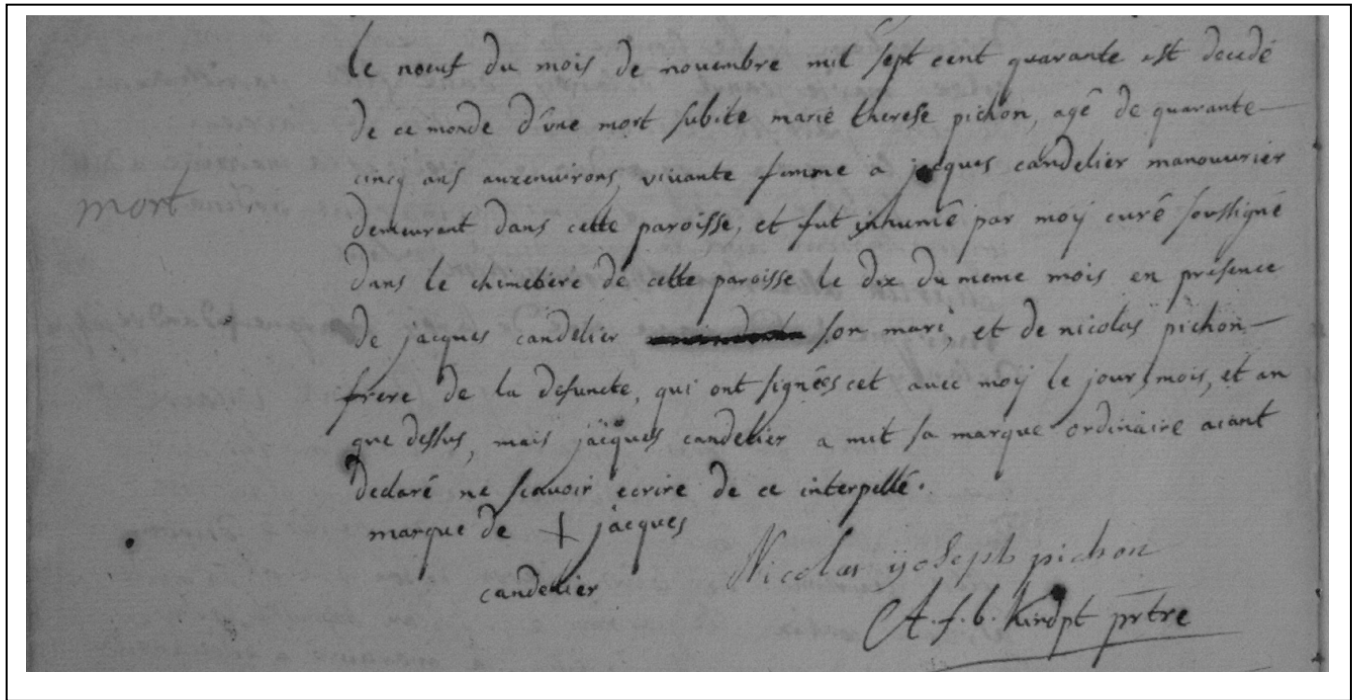 le noeuf du mois de novembre mil sept cent quarante est decedé
de ce monde d'une mort subite marie therese pichon, agé de quarante
cincq ans auxenvirons, vivante femme a jacques candelier manouvrier
mort
demeurant dans cette paroisse, et fut inhumé par moÿ curé soussigné
dans le chimetiere de cette paroisse le dix du meme mois en presence
de jacques candelier son mari, et de nicolas pichon
frere de la defuncte, qui ont signées cet avec moÿ le jour, mois, et an
que dessus, mais jacques candelier a mit sa marque ordinaire aiant
declaré ne scavoir ecrire de ce interpellé.
marque de + jacques
candelier
Nicolas yoseph pichon
A. f. b. prtre